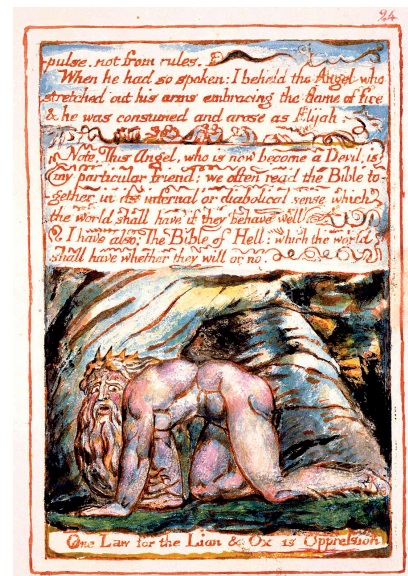 24
pulse. not from rules.
When he had so spoken: I beheld the Angel who
stretched out his arms embracing the flame of fire
& he was consumed and arose as Elijah.
Note. This Angel, who is now become a Devil, is
my particular friend: we often read the Bible to-
gether in its infernal or diabolical sense which
the world shall have if they behave well
I have also: The Bible of Hell: which the world
shall have whether they will or no.
One Law for the Lion & Ox is Oppression